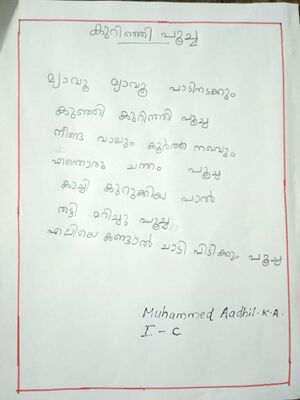 കുറിഞ്ഞി പൂച്ച
മ്യാവൂ മ്യാവൂ പാടിനടക്കും
കുഞ്ഞി കുറിഞ്ഞി പൂച്ച
നീണ്ട വാലും കൂർത്ത നഖവും
എന്തൊരു ചന്തം പൂച്ച
കാച്ചി കുറുക്കിയ പാൽ
തട്ടി മറിച്ചു പൂച്ച
എലിയെ കണ്ടാൽ ചാടി പിടിക്കും പൂച്ച
Muhammed Aadhil.K.A.
I-C